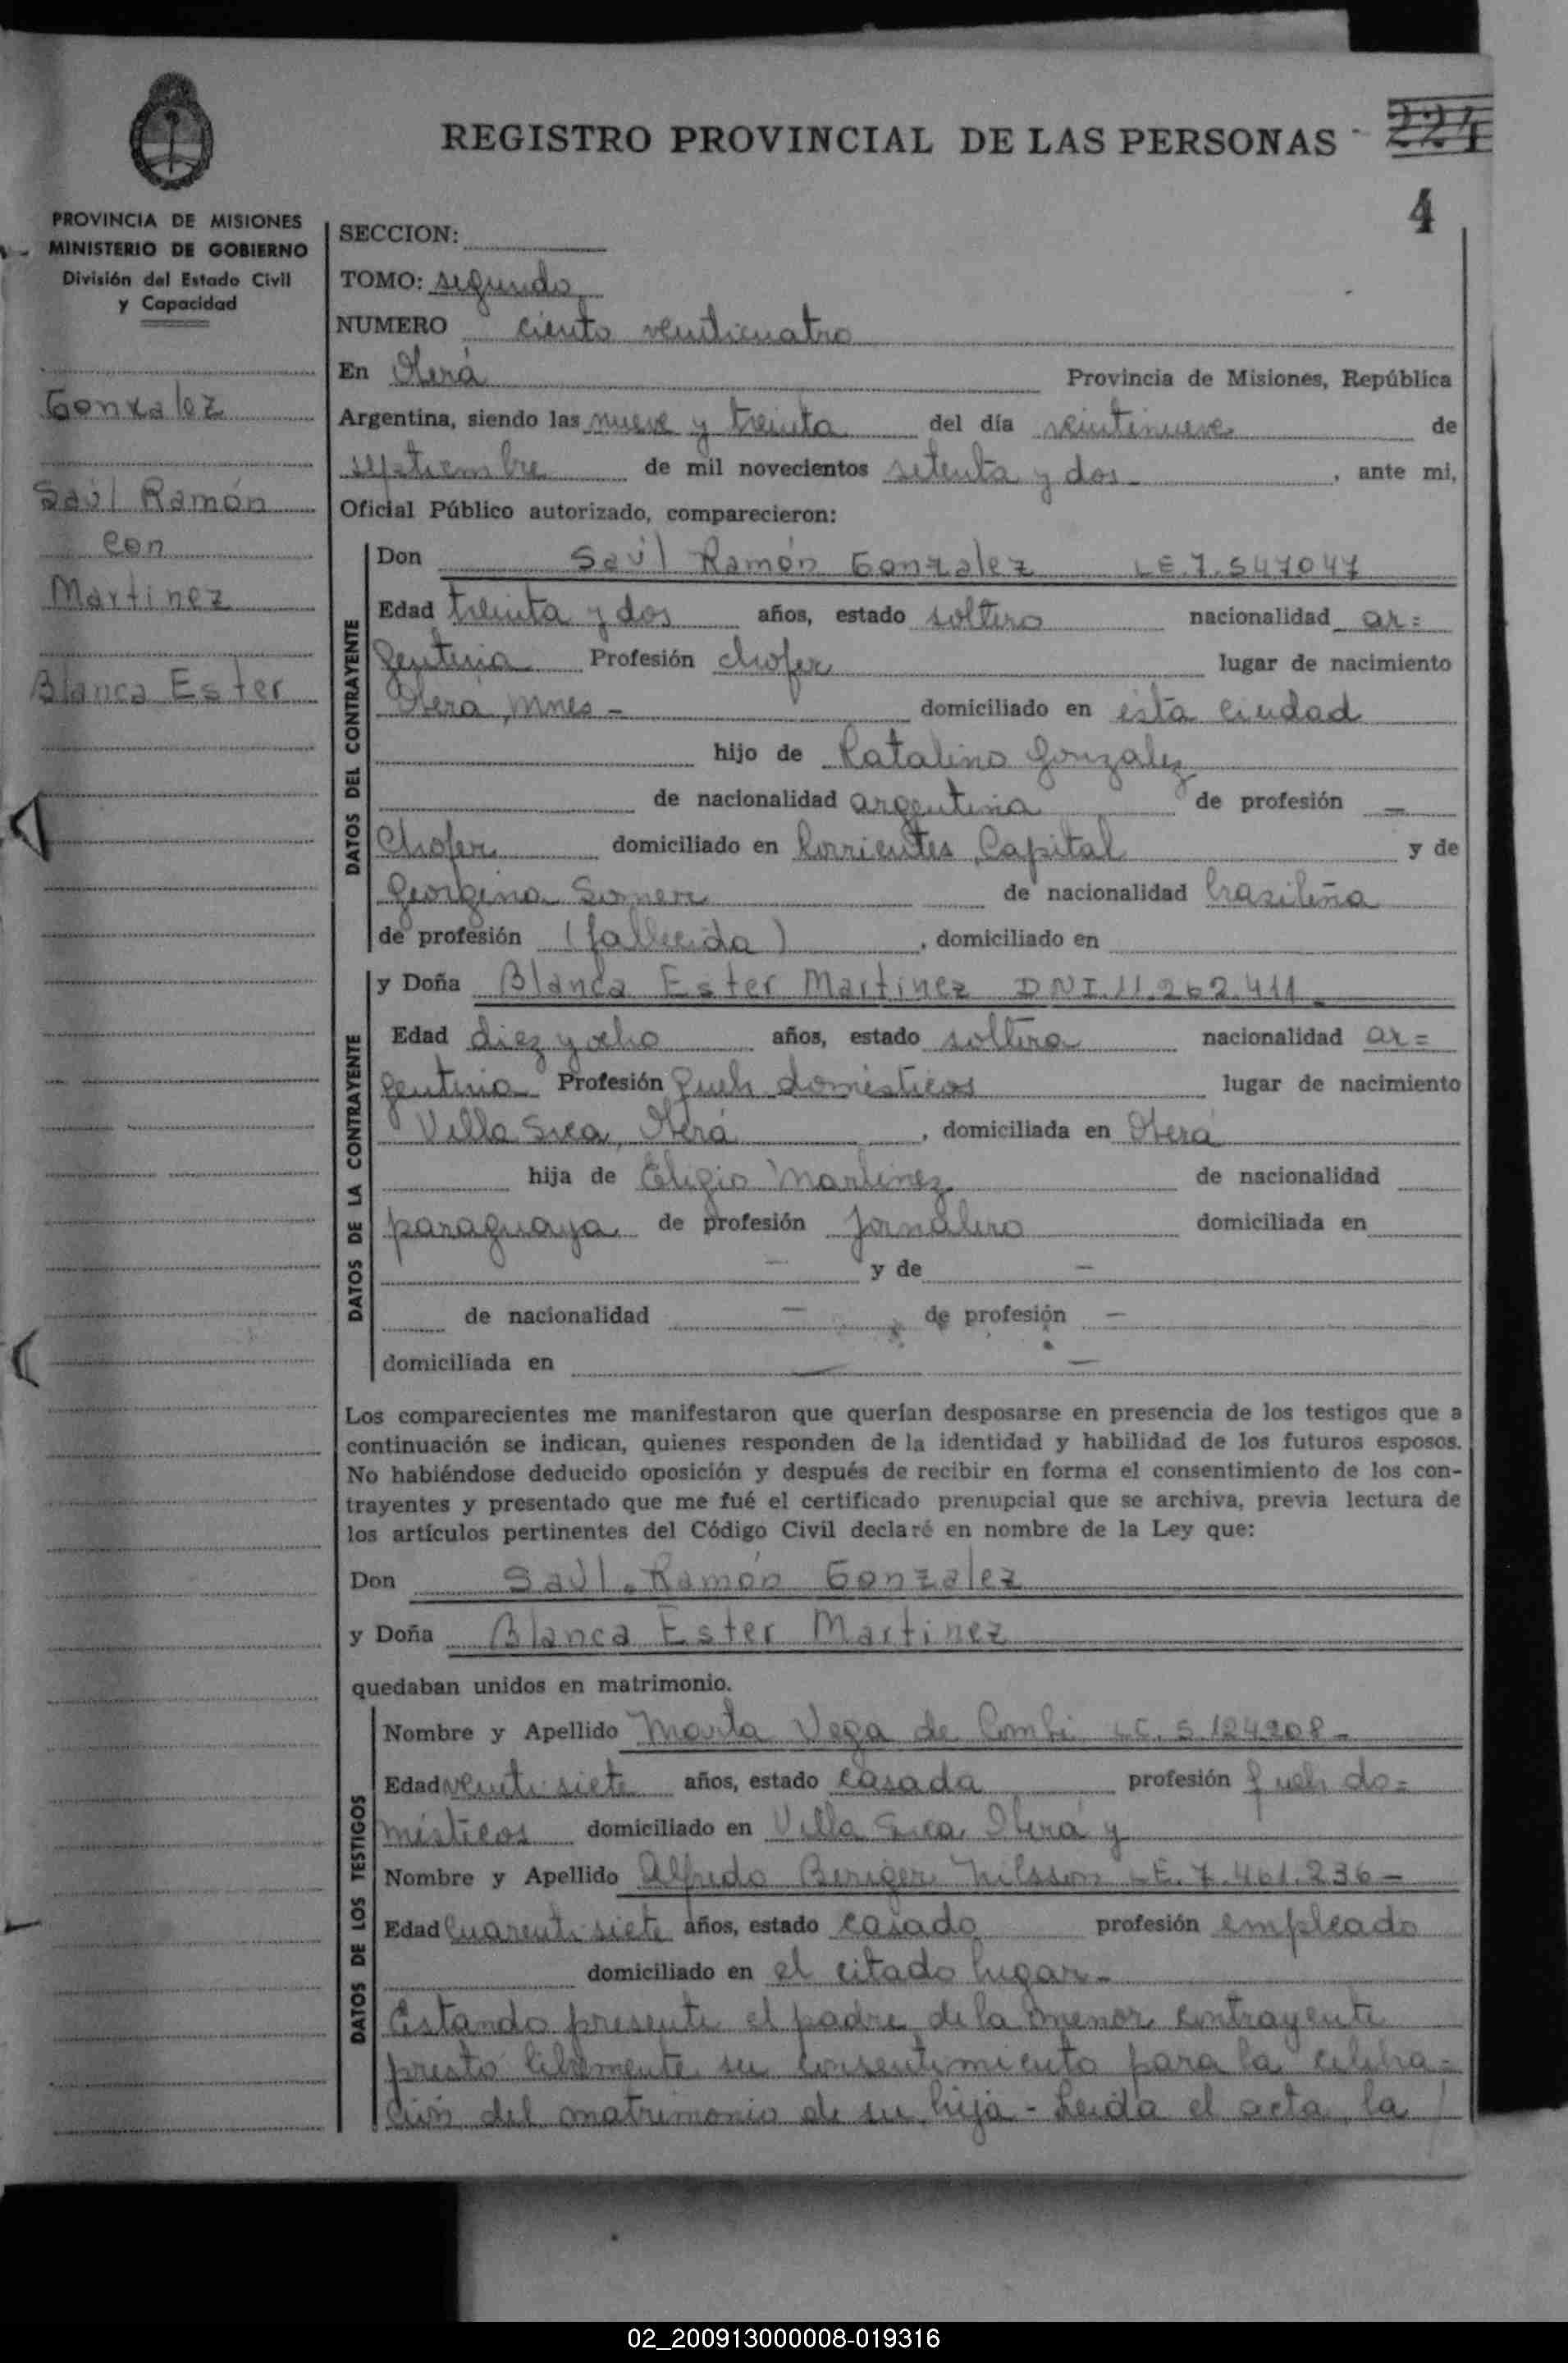 REGISTRO PROVINCIAL DE LAS PERSONAS - 224
4
PROVINCIA DE MISIONES
MINISTERIO DE GOBIERNO
División del Estado Civil
y Capacidad
Gonzalez
Saúl Ramón
con
Martinez
Blanca Ester
SECCION:
TOMO: segundo
NUMERO ciento venticuatro
En Oberá Provincia de Misiones, República
Argentina, siendo las nueve y treinta del día veintinueve de
septiembre de mil novecientos setenta y dos - , ante mi,
Oficial Público autorizado, comparecieron:
DATOS DEL CONTRAYENTE
Don Saúl Ramón Gonzalez LE.7.547047
Edad treinta y dos años, estado soltero nacionalidad ar=
gentina Profesión chofer lugar de nacimiento
Oberá, Mnes - domiciliado en esta ciudad
hijo de Catalino Gonzalez
de nacionalidad argentina de profesión —
Chofer domiciliado en Corrientes, Capital y de
Georgina de nacionalidad brasileña
de profesión (fallecida) , domiciliado en
DATOS DE LA CONTRAYENTE
y Doña Blanca Ester Martinez DNI.11.262.411
Edad diez y ocho años, estado soltera nacionalidad ar=
gentina Profesión queh. domésticos lugar de nacimiento
Villa Svea, Oberá , domiciliada en Oberá
hija de Eligio Martinez de nacionalidad
paraguaya de profesión jornalero domiciliada en
— y de —
de nacionalidad — de profesión —
domiciliada en —
Los comparecientes me manifestaron que querían desposarse en presencia de los testigos que a
continuación se indican, quienes responden de la identidad y habilidad de los futuros esposos.
No habiéndose deducido oposición y después de recibir en forma el consentimiento de los con-
trayentes y presentado que me fué el certificado prenupcial que se archiva, previa lectura de
los artículos pertinentes del Código Civil declaré en nombre de la Ley que:
Don Saúl Ramón Gonzalez
y Doña Blanca Ester Martinez
quedaban unidos en matrimonio.
DATOS DE LOS TESTIGOS
Nombre y Apellido Marta Vega de LC. 5.124208-
Edad venti siete años, estado casada profesión queh do=
mésticos domiciliado en Villa Svea, Oberá y
Nombre y Apellido Alfredo Nilsson LE. 7.461.236-
Edad cuarenti siete años, estado casado profesión empleado
domiciliado en el citado lugar-
Estando presente el padre de la menor contrayente
prestó libremente su consentimiento para la celebra=
ción del matrimonio de su hija - Leida el acta, la /
02_200913000008-019316